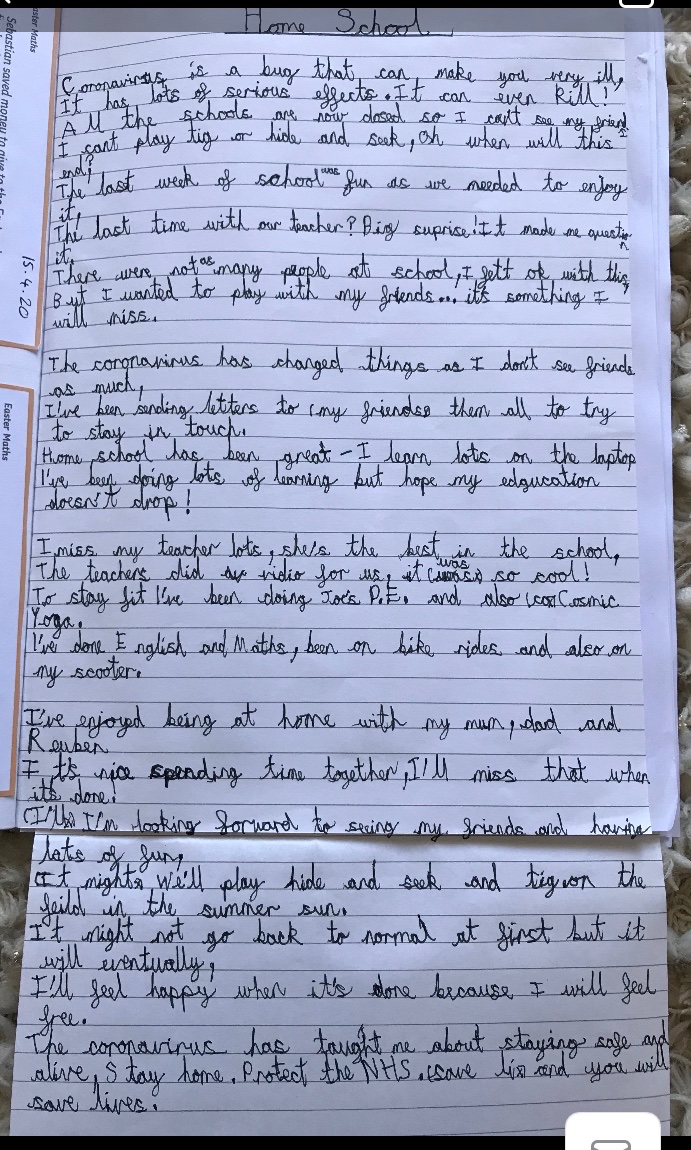 Home School
Coronavirus is a bug that can make you very ill,
It has lots of serious effects. It can even kill!
All the schools are now closed so I can't see my friends
I cant play tig or hide and seek, Oh when will this
end?
The last week of school was fun as we needed to enjoy
it,
The last time with our teacher? Big suprise! It made me question
it.
There were not as many people at school, I felt ok with this,
But I wanted to play with my friends... it's something I
will miss.
The coronavirus has changed things as I don't see friends
as much,
I've been sending letters to (my friends) them all to try
to stay in touch.
Home school has been great - I learn lots on the laptop
I've been doing lots of learning but hope my edgucation
doesn't drop!
I miss my teacher lots, she's the best in the school,
The teachers did a vidio for us, it was so cool!
To stay fit I've been doing Joe's P.E. and also Cosmic
Yoga.
I've done English and Maths, been on bike rides and also on
my scooter.
I've enjoyed being at home with my mum, dad and
Reuben
It's nice spending time together, I'll miss that when
it's done!
(I'll) I'm looking forward to seeing my friends and having
lots of fun,
We'll play hide and seek and tig on the
feild in the summer sun.
It might not go back to normal at first but it
will eventually,
I'll feel happy when it's done because I will feel
free.
The coronavirus has taught me about staying safe and
alive, Stay home. Protect the NHS. (save liv) and you will
save lives.
aster Maths
Sebastian saved money to give to the
15.4.20
Easter Maths